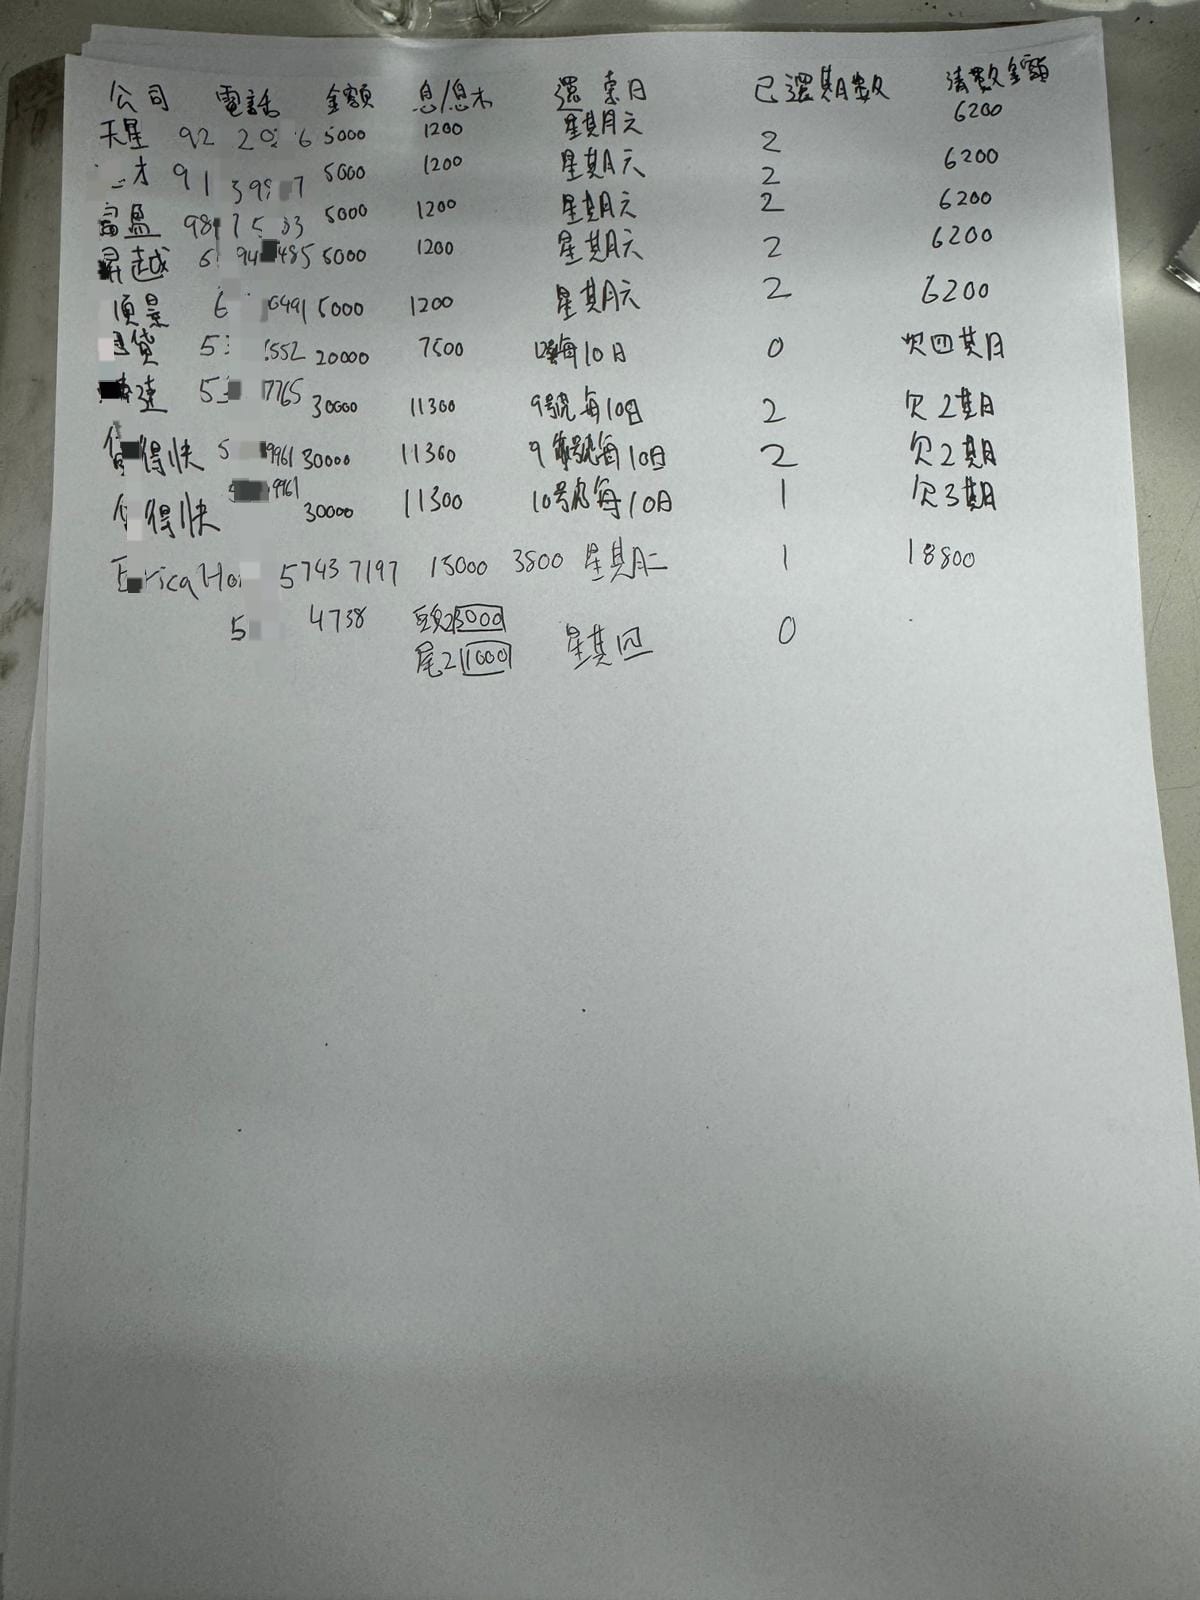 公司 電話 金額 息/息本 還素日 已還期數 清數金額
天星 92 20 6 5000 1200 星期六 2 6200
才 91 399 7 5000 1200 星期六 2 6200
富盈 98 75 33 5000 1200 星期六 2 6200
越 6 94 485 5000 1200 星期六 2 6200
順景 6 6491 5000 1200 星期六 2 6200
貸 53 6552 20000 7500 每10日 0 欠四期日
達 53 7765 30000 11300 9號每10日 2 欠2期
得快 5 9961 30000 11300 9號每10日 2 欠2期
得快 9961 30000 11300 10號每10日 1 欠3期
Erica Ho 5743 7197 15000 3800 星期二 1 18800
5 4738 頭23000 星期四 0
尾21000